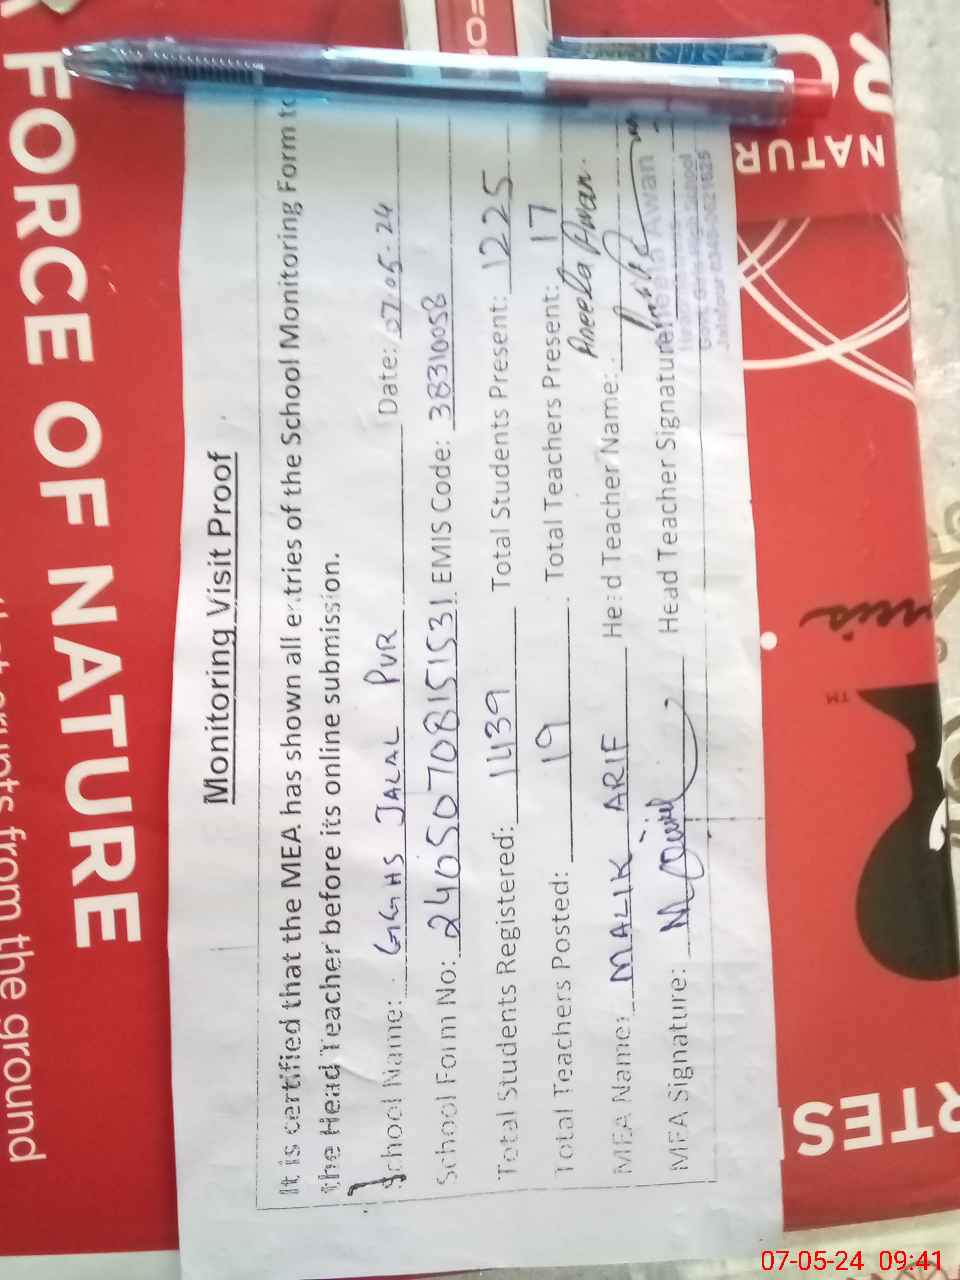 Monitoring Visit Proof
It is certified that the MEA has shown all entries of the School Monitoring Form to
the Head Teacher before its online submission.
School Name: GGHS JALAL PUR Date: 07-05-24
School Form No: 24050708151531 EMIS Code: 38310058
Total Students Registered: 1439 Total Students Present: 1225
Total Teachers Posted: 19 Total Teachers Present: 17
MEA Name: MALIK ARIF Head Teacher Name: Aneela Awan
MEA Signature: Head Teacher Signature:
Aneela Awan
FORCE OF NATURE
from the ground
NATUR
TM
07-05-24 09:41